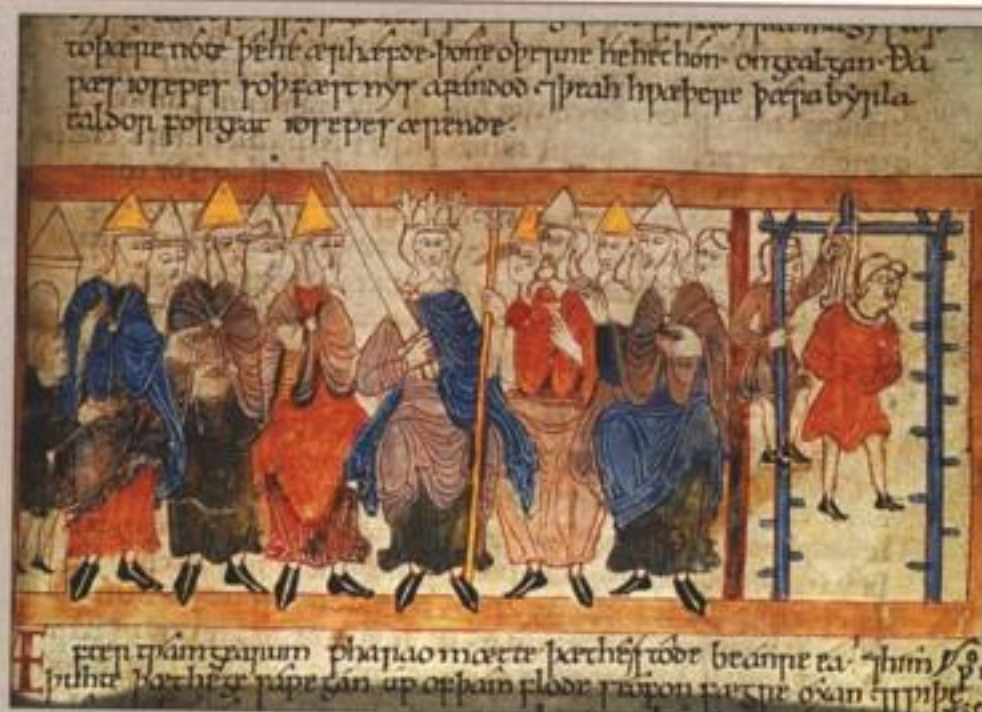 to þære note þe he ær hæfde· þone oþerne he het hon· on gealgan· Ða
wæs iosepes soþfæstnys afandod ⁊ þeah hwæþere þæra byrla
ealdor forgeat iosepes ærende·
Æfter twam gearum pharao mætte þæt he stode be anre ea· ⁊ him
þuhte þæt he ge sawe gan up of þam flode seofon fægre oxan ⁊ swiþe